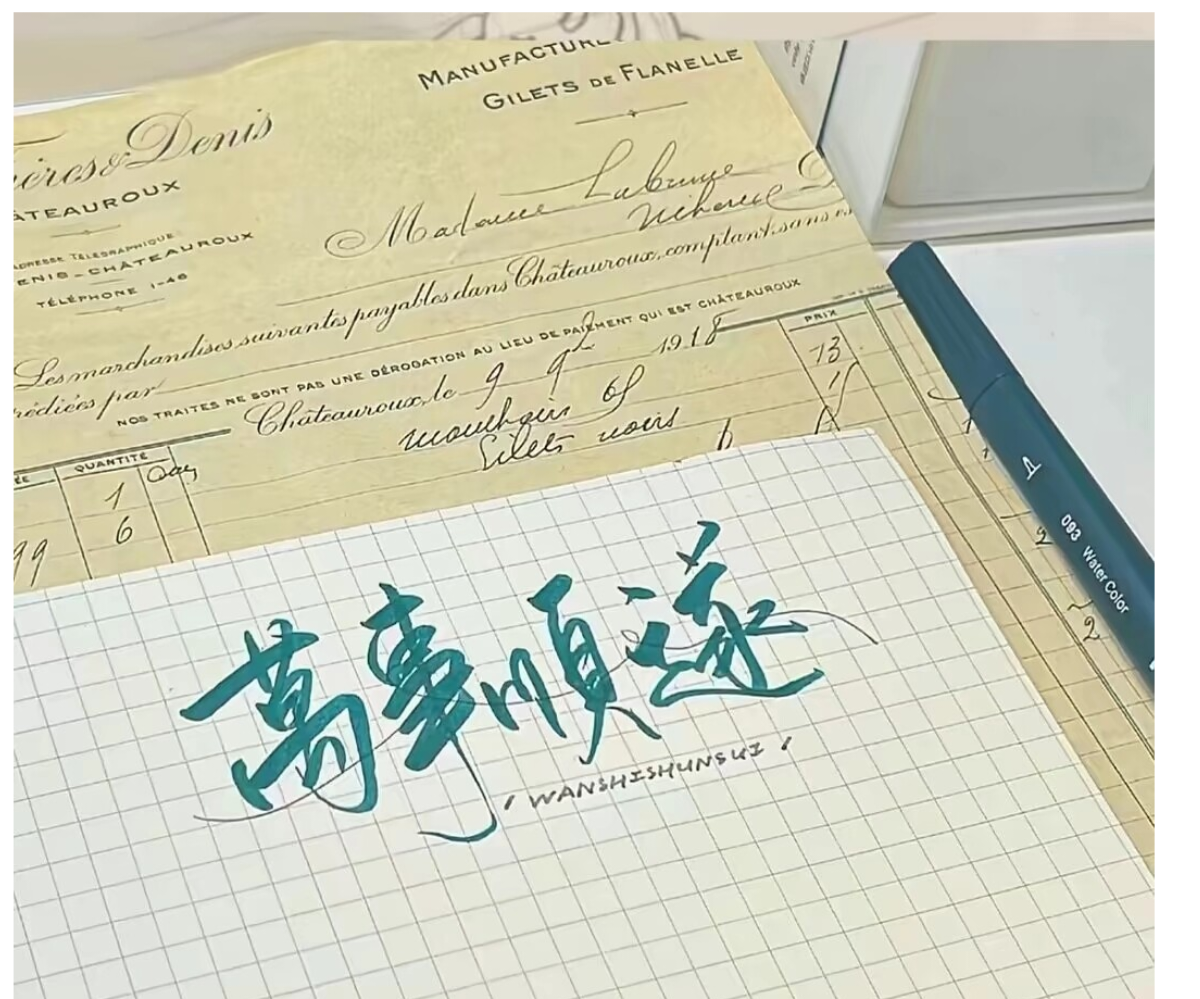 MANUFACTURE
GILETS DE FLANELLE
& Denis
CHÂTEAUROUX
ADRESSE TÉLÉGRAPHIQUE
DENIS-CHÂTEAUROUX
TÉLÉPHONE 1-46
Madame Labrune
Les marchandises suivantes payables dans Châteauroux, comptant, sans es
par
NOS TRAITES NE SONT PAS UNE DÉROGATION AU LIEU DE PAIEMENT QUI EST CHÂTEAUROUX
Châteauroux, le 9 9 1918
PRIX
QUANTITÉ
mouchoirs
13
1
Gilets noirs
6
99
2
2
093 Water Color
萬事順遂
/ WANSHISHUNSUI /